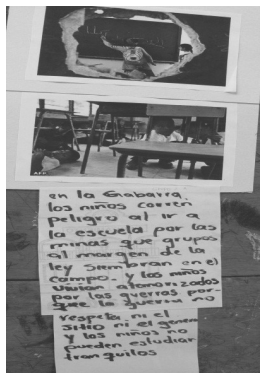 AFP
en la Gabarra,
los niños corren
peligro al ir a
la escuela por las
minas que grupos
al margen de la
ley siembran en el
campo. y los niños
Vivian atemorizados
por las guerras por-
que la guerra no
respeta ni el
sitio ni el genero
y los niños no
pueden estudiar
tranquilos